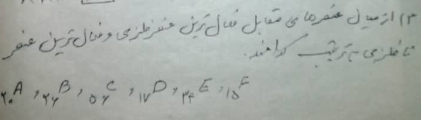 ۱۳) از میان عنصرهای متقابل فعال‌ترین عنصر فلزی و فعال‌ترین عنصر
نافلزی به ترتیب کدامند.
۲۰A , ۲۶B , ۵۶C , ۱۷D , ۳۴E , ۱۵F